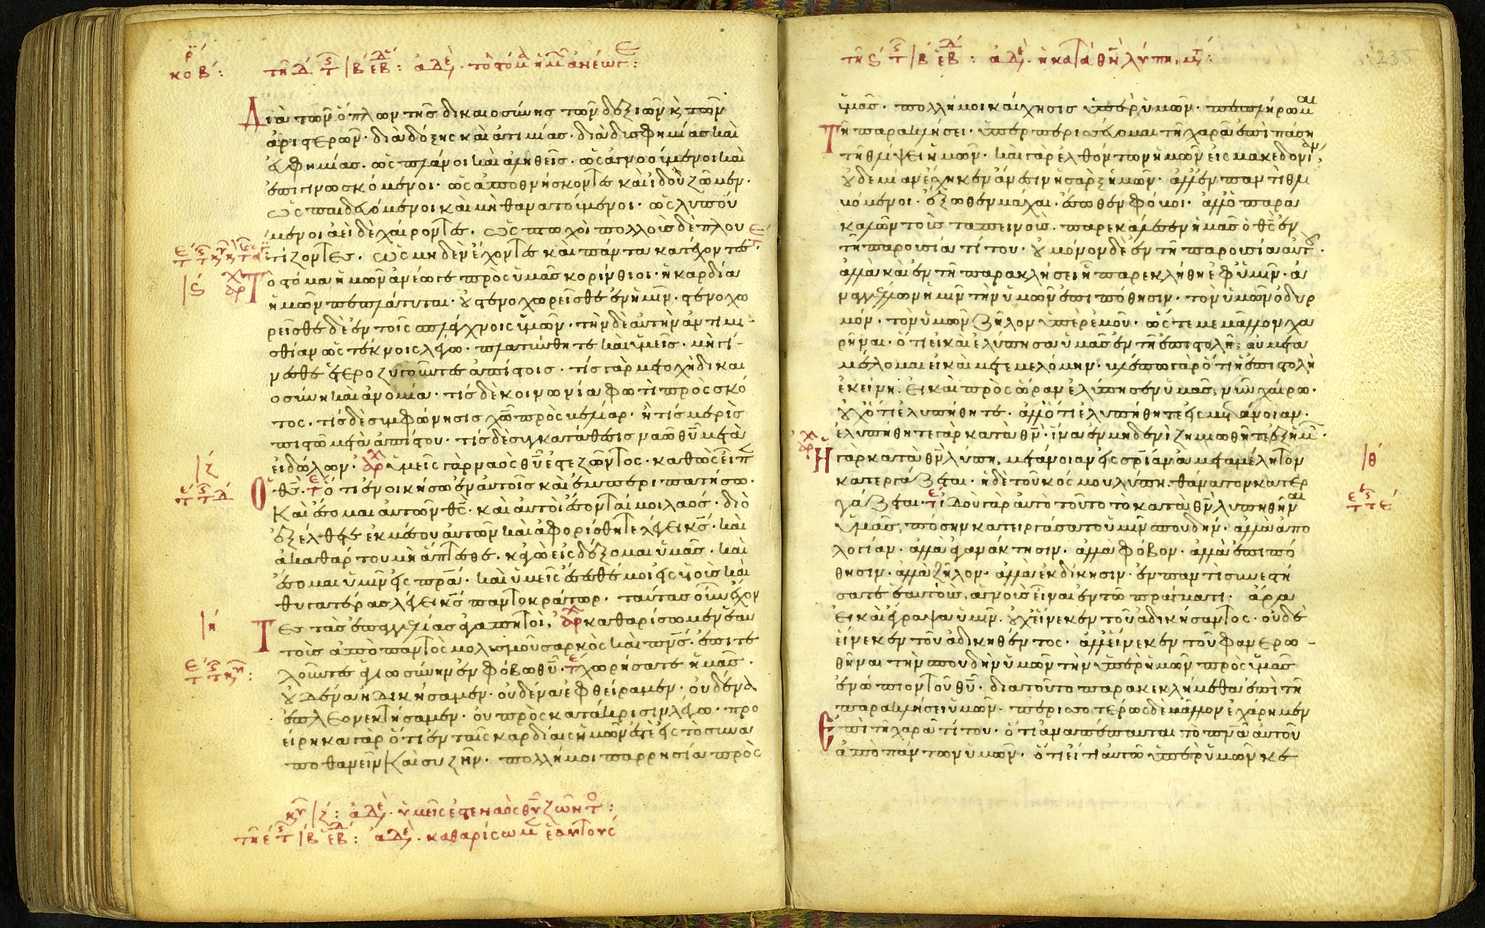 κοβ´: τῇ δ´ τ ιβ´ ἑβ δ´: ἀδελ. τὸ στόμ ἡμ ἀνέωγ:
Διὰ τῶν ὅπλων τῆς δικαιοσύνης τῶν δεξιῶν κ τῶν
ἀριστερῶν· διὰ δόξης καὶ ἀτιμίας· διὰ δυσφημίας καὶ
εὐφημίας· ὡς πλάνοι καὶ ἀληθεῖς· ὡς ἀγνοούμενοι καὶ
ἐπιγινωσκόμενοι· ὡς ἀποθνήσκοντες καὶ ἰδοὺ ζῶμεν·
ὡς παιδευόμενοι καὶ μὴ θανατούμενοι· ὡς λυπού
μενοι ἀεὶ δὲ χαίροντες· ὡς πτωχοὶ πολλοὺς δὲ πλου
τίζοντες· ὡς μηδὲν ἔχοντες καὶ πάντα κατέχοντες·
Τὸ στόμα ἡμῶν ἀνέωγε πρὸς ὑμᾶς κορίνθιοι· ἡ καρδία
ἡμῶν πεπλάτυνται· οὐ στενοχωρεῖσθε ἐν ἡμῖν· στενοχω
ρεῖσθε δὲ ἐν τοῖς σπλάγχνοις ὑμῶν· τὴν δὲ αὐτὴν ἀντιμι
σθίαν ὡς τέκνοις λέγω· πλατύνθητε καὶ ὑμεῖς· μὴ γί
νεσθε ἑτεροζυγοῦντες ἀπίστοις· τίς γὰρ μετοχὴ δικαι
οσύνη καὶ ἀνομία· τίς δὲ κοινωνία φωτὶ πρὸς σκό
τος· τίς δὲ συμφώνησις χῶ πρὸς βελίαρ· ἢ τίς μερὶς
πιστῶ μετὰ ἀπίστου· τίς δὲ συγκατάθεσις ναῶ θῦ μετὰ
εἰδώλων· ὑμεῖς γὰρ ναὸς θῦ ἐστε ζῶντος· καθὼς εἶπ
Ὁ θς· ὅτι ἐνοικήσω ἐν αὐτοῖς καὶ ἐμπεριπατήσω·
Καὶ ἔσομαι αὐτῶν θς· καὶ αὐτοὶ ἔσονταί μοι λαός· διὸ
ἐξέλθετε ἐκ μέσου αὐτῶν καὶ ἀφορίσθητε λέγει κς· καὶ
ἀκαθάρτου μὴ ἅπτεσθε· κἀγὼ εἰσδέξομαι ὑμᾶς· καὶ
ἔσομαι ὑμῖν εἰς πρα· καὶ ὑμεῖς ἔσεσθέ μοι εἰς υἱοὺς καὶ
θυγατέρας λέγει κς παντοκράτωρ· ταύτας οὖν ἔχον
Τες τὰς ἐπαγγελίας ἀγαπητοί, καθαρίσωμεν ἑαυ
τοὺς ἀπὸ παντὸς μολυσμοῦ σαρκὸς καὶ πνς· ἐπιτε
λοῦντες ἁγιωσύνην ἐν φόβω θῦ· χωρήσατε ἡμᾶς·
οὐδένα ἠδικήσαμεν· οὐδένα ἐφθείραμεν· οὐδένα
ἐπλεονεκτήσαμεν· οὐ πρὸς κατάκρισιν λέγω· προ
είρηκα γὰρ ὅτι ἐν ταῖς καρδίαις ἡμῶν ἐστὲ εἰς τὸ συνα
ποθανεῖν καὶ συζῆν· πολλή μοι παρρησία πρὸς
κυ ιζ´: ἀδελ. ὑμεῖς ἐστε ναὸς θῦ ζῶντο:
τῇ ε´ τ ιβ´ ἑβ δ´: ἀδελ. καθαρίσωμ ἑαυτούς
τῇ ς´ τ ιβ´ ἑβ δ´: ἀδελ. ἡ κατὰ θν λύπη, μτ:
ὑμᾶς· πολλή μοι καύχησις ὑπὲρ ὑμῶν· πεπλήρωμαι
Τῆ παρακλήσει· ὑπερπερισσεύομαι τῆ χαρᾶ ἐπὶ πάση
τῆ θλίψει ἡμῶν· καὶ γὰρ ἐλθόντων ἡμῶν εἰς μακεδονίαν,
οὐδεμίαν ἔσχηκεν ἄνεσιν ἡ σὰρξ ἡμῶν· ἀλλ' ἐν παντὶ θλι
βόμενοι· ἔξωθεν μάχαι· ἔσωθεν φόβοι· ἀλλ' ὁ παρα
καλῶν τοὺς ταπεινοὺς· παρεκάλεσεν ἡμᾶς ὁ θς ἐν
τῆ παρουσία τίτου· οὐ μόνον δὲ ἐν τῆ παρουσία αὐτοῦ·
ἀλλὰ καὶ ἐν τῆ παρακλήσει ἧ παρεκλήθη ἐφ' ὑμῖν· ἀ
ναγγέλλων ἡμῖν τὴν ὑμῶν ἐπιπόθησιν· τὸν ὑμῶν ὀδυρ
μόν· τὸν ὑμῶν ζῆλον ὑπὲρ ἐμοῦ· ὥστε με μᾶλλον χα
ρῆναι· ὅτι εἰ καὶ ἐλύπησα ὑμᾶς ἐν τῆ ἐπιστολῆ· οὐ μετα
μέλομαι εἰ καὶ μετεμελόμην· βλέπω γὰρ ὅτι ἡ ἐπιστολὴ
ἐκείνη. εἰ καὶ πρὸς ὥραν ἐλύπησεν ὑμᾶς, νῦν χαίρω·
οὐχ ὅτι ἐλυπήθητε· ἀλλ' ὅτι ἐλυπήθητε εἰς μετάνοιαν·
ἐλυπήθητε γὰρ κατὰ θν· ἵνα ἐν μηδενὶ ζημιωθῆτε ἐξ ἡμῶν·
Ἡ γὰρ κατὰ θν λύπη, μετάνοιαν εἰς σρίαν ἀμεταμέλητον
κατεργάζεται· ἡ δὲ τοῦ κόσμου λύπη θάνατον κατερ
γάζεται· ἰδοὺ γὰρ αὐτὸ τοῦτο τὸ κατὰ θν λυπηθῆναι
ὑμᾶς, πόσην κατειργάσατο ὑμῖν σπουδήν· ἀλλὰ ἀπο
λογίαν· ἀλλὰ ἀγανάκτησιν· ἀλλὰ φόβον· ἀλλὰ ἐπιπό
θησιν· ἀλλὰ ζῆλον· ἀλλὰ ἐκδίκησιν· ἐν παντὶ συνεστή
σατε ἑαυτοὺς, ἁγνοὺς εἶναι ἐν τῶ πράγματι· ἄρα
εἰ καὶ ἔγραψα ὑμῖν· οὐχ εἵνεκεν τοῦ ἀδικήσαντος· οὐδὲ
εἵνεκεν τοῦ ἀδικηθέντος· ἀλλ' εἵνεκεν τοῦ φανερω
θῆναι τὴν σπουδὴν ὑμῶν τὴν ὑπὲρ ἡμῶν πρὸς ὑμᾶς
ἐνώπιον τοῦ θῦ· διὰ τοῦτο παρακεκλήμεθα ἐπὶ τῆ
παρακλήσει ὑμῶν· περισσοτέρως δὲ μᾶλλον ἐχάρημεν
Ἐπὶ τῆ χαρᾶ τίτου· ὅτι ἀναπέπαυται τὸ πνα αὐτοῦ
ἀπὸ πάντων ὑμῶν· ὅτι εἴ τι αὐτῶ ὑπὲρ ὑμῶν κε